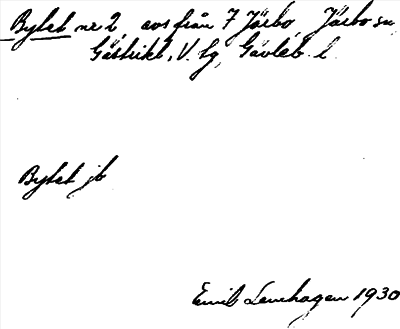 Bytet nr 2, avs från 7 Järbo, Järbo sn,
Gästrikl. V. tg, Gävleb. l.
Bytet jb
Emil Lenhagen 1930